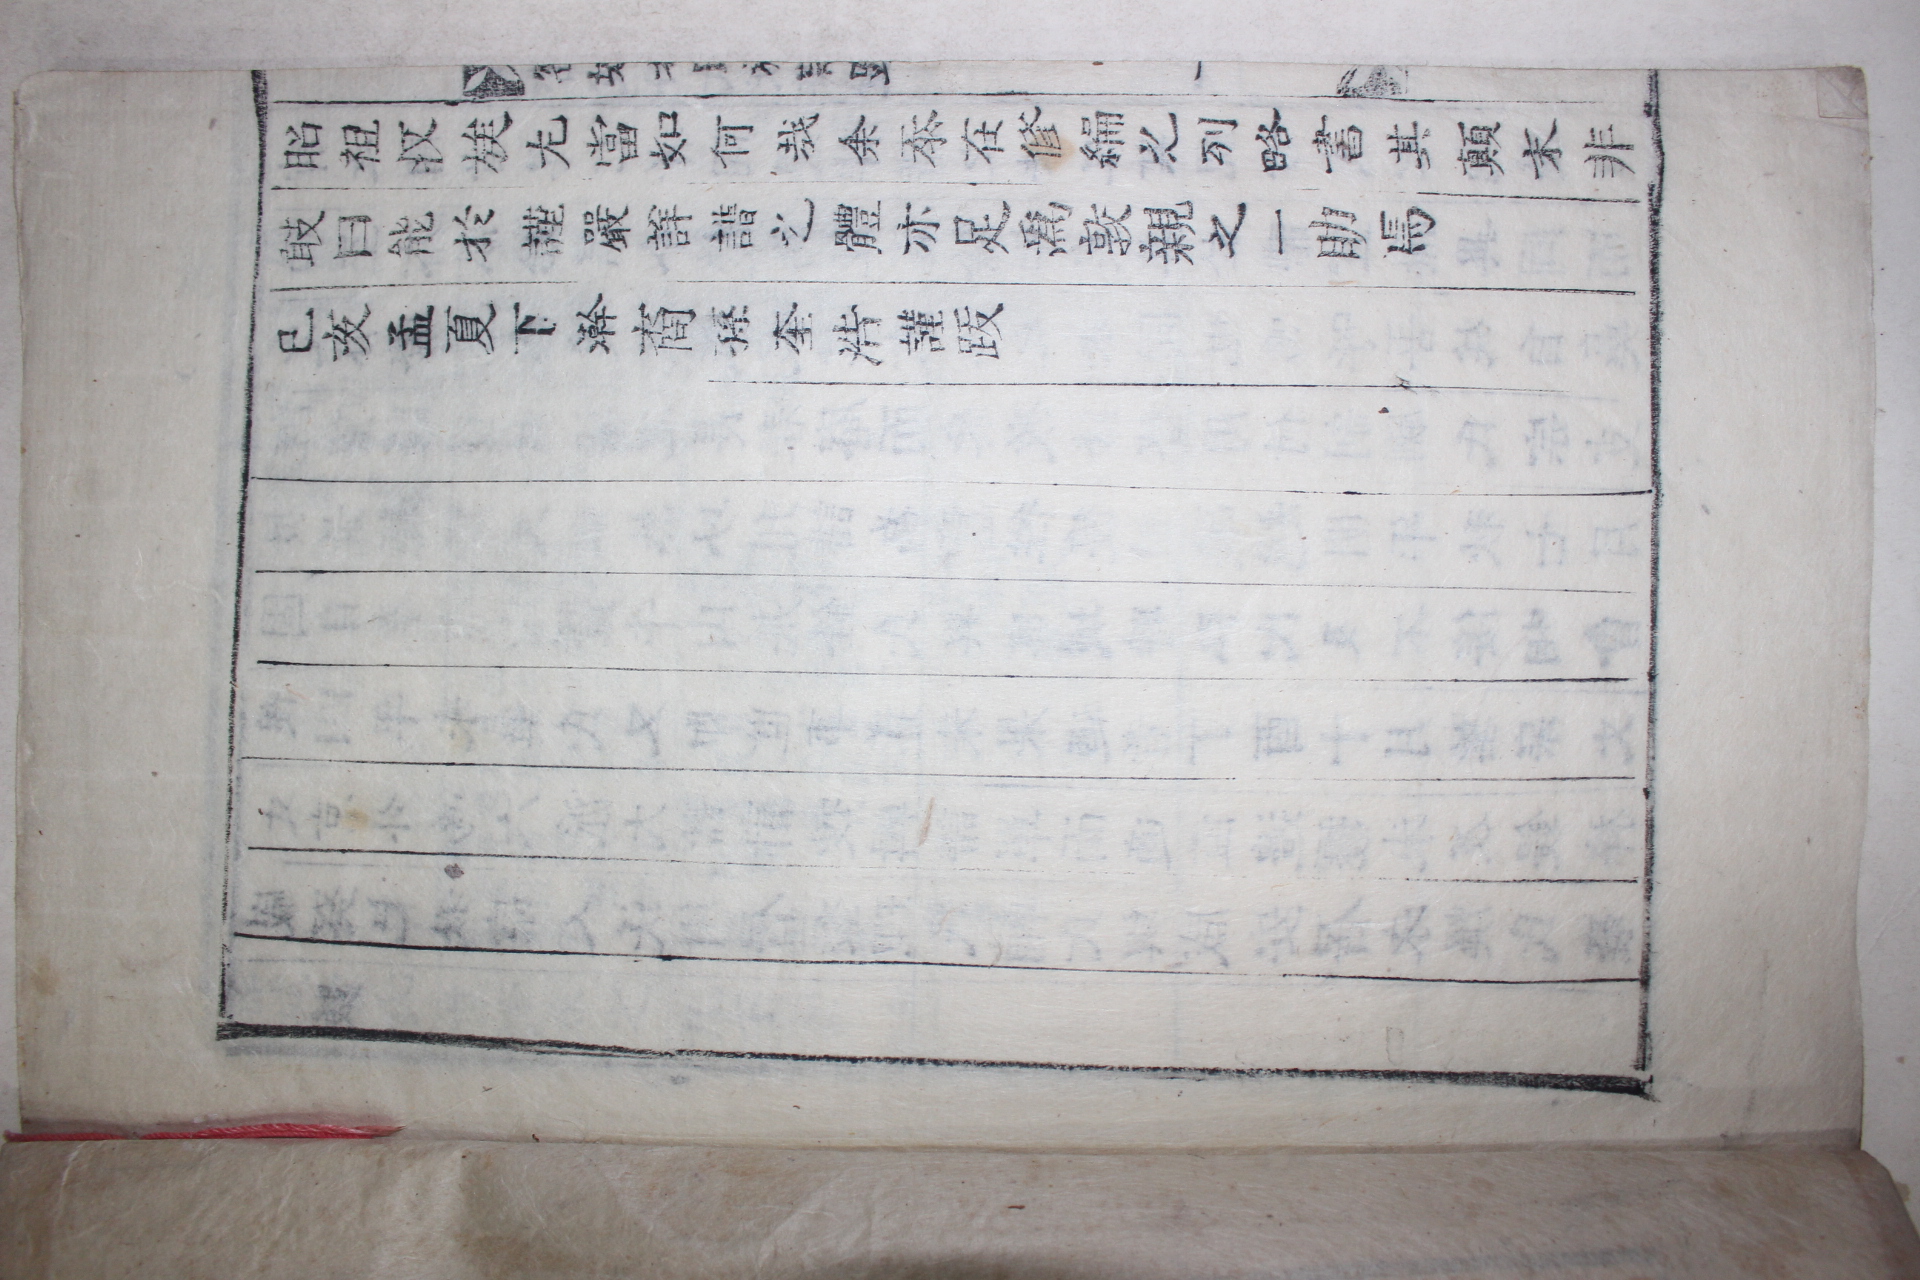 昭祖收族尤當如何哉余忝在修編之列略書其顚末非
敢曰能於謹嚴詳譜之體亦足爲敦親之一助焉
己亥孟夏下澣裔孫奎浩謹跋
密城朴氏